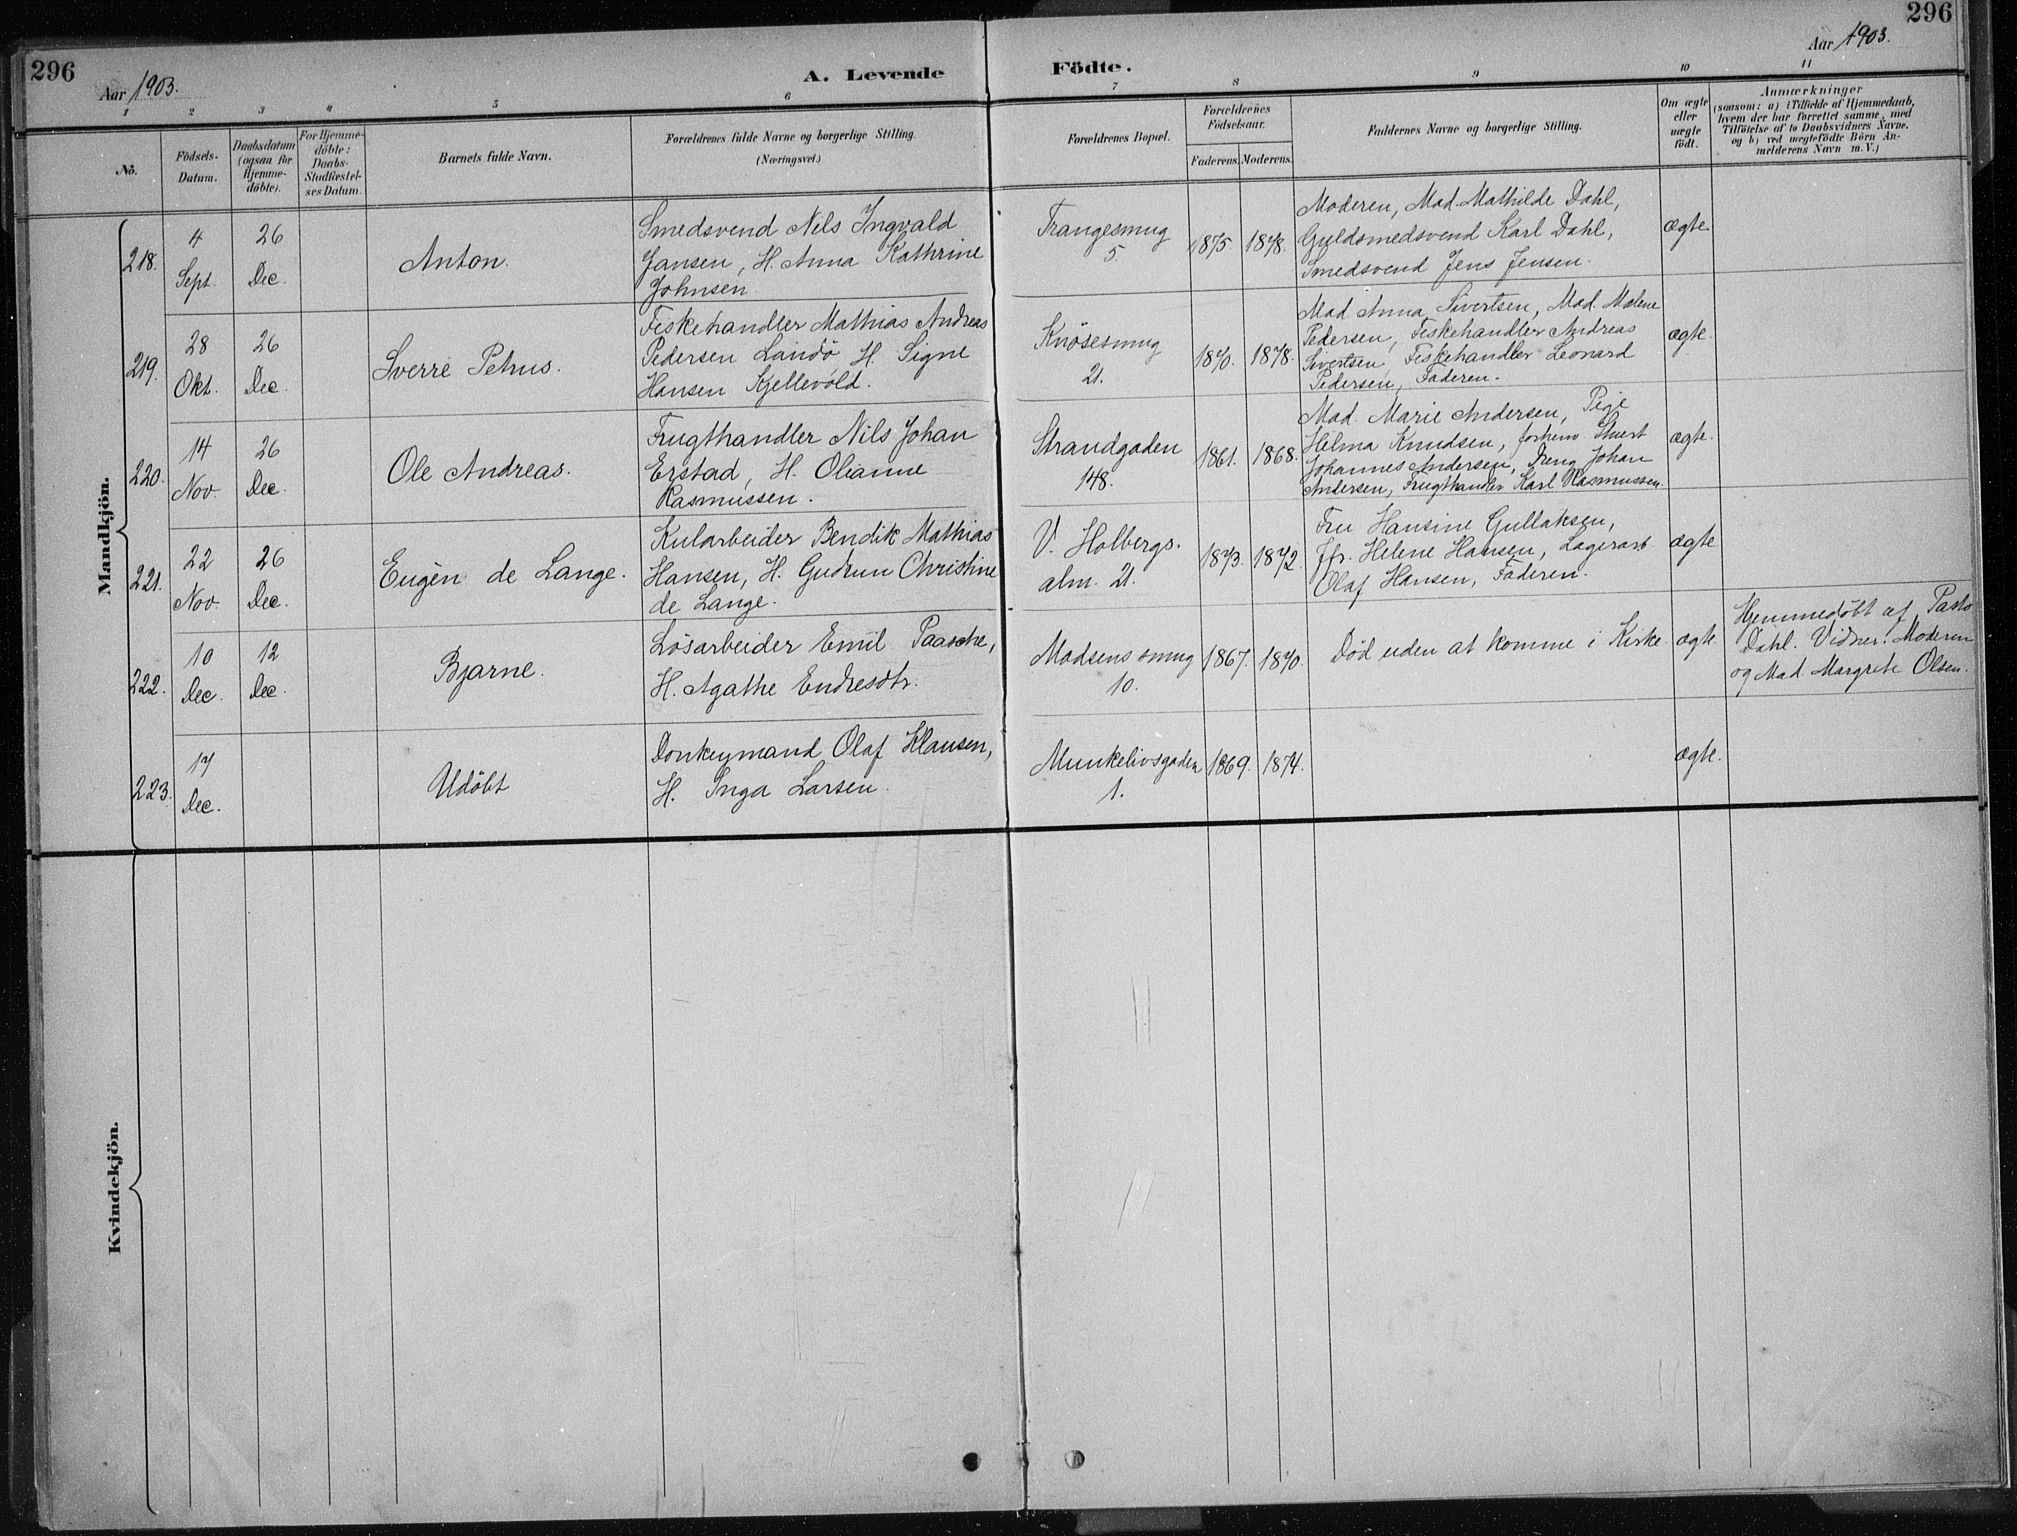 296
296
Aar 1903.
A. Levende
Födte.
Aar 1903.
1 2 3 4 5 6 7 8 9 10 11
No.
Födsels-
Datum.
Daabsdatum
(ogsaa for
Hjemme-
döbte).
For Hjemme-
döbte:
Daabs-
Stadfæstel-
ses Datum.
Barnets fulde Navn.
Forældrenes fulde Navne og borgerlige Stilling.
(Næringsvei.)
Forældrenes Bopæl.
Forældrenes
Födselsaar.
Faderens. Moderens.
Faddernes Navne og borgerlige Stilling.
Om ægte
eller
uægte
födt.
Anmærkninger
(saasom: a) i Tilfælde af Hjemmedaab,
hvem der har forrettet samme, med
Tilföielse af to Daabsvidners Navne,
og b) ved uægtefödte Börn An-
melderens Navn m. V.)
Mandkjön.
218.
4
Sept.
26
Dec.
Anton.
Smedsvend Nils Ingvald
Jansen, H. Anna Kathrine
Johnsen.
Trangesmug
5.
1875. 1878.
Moderen, Mad. Mathilde Dahl,
Guldsmedsvend Karl Dahl,
Smedsvend Jens Jensen.
ægte.
219.
28
Okt.
26
Dec.
Sverre Petrus.
Fiskehandler Mathias Andreas
Pedersen Landö H. Signe
Hansen Kjellevold.
Knösesmug
21.
1870. 1878.
Mad Anna Sivertsen, Mad. Malene
Pedersen, Fiskehandler Andreas
Sivertsen, Fiskehandler Leonard
Pedersen, Faderen.
ægte.
220.
14
Nov.
26
Dec.
Ole Andreas.
Frugthandler Nils Johan
Erstad, H. Olianne
Rasmussen.
Strandgaden
148.
1861. 1868.
Mad. Marie Andersen, Pige
Helma Knudsen, forhenv. Stuert
Johannes Andersen, Dreng Johan
Andersen, Frugthandler Karl Rasmussen.
ægte.
221.
22
Nov.
26
Dec.
Eugèn de Lange.
Kularbeider Bendik Mathias
Hansen, H. Gudrun Christine
de Lange.
V. Holbergs.
alm. 21.
1873. 1872.
Fru Hansine Gullaksen,
Jfr. Helene Hansen, Lagerarb.
Olaf Hansen, Faderen.
ægte
222.
10
Dec.
12
Dec.
Bjarne.
Lösarbeider Emil Paasche,
H. Agathe Endresdtr.
Madsens smug
10.
1867. 1870.
Död uden at komme i Kirke.
ægte.
Hjemmedöbt af Pasto
Dahl. Vidner: Moderen
og Mad. Margrete Olsen.
223.
17
Dec.
Udöbt
Donkeymand Olaf Klausen,
H. Inga Larsen.
Munkelivsgaden
1.
1869. 1874.
ægte.
Kvindekjön.